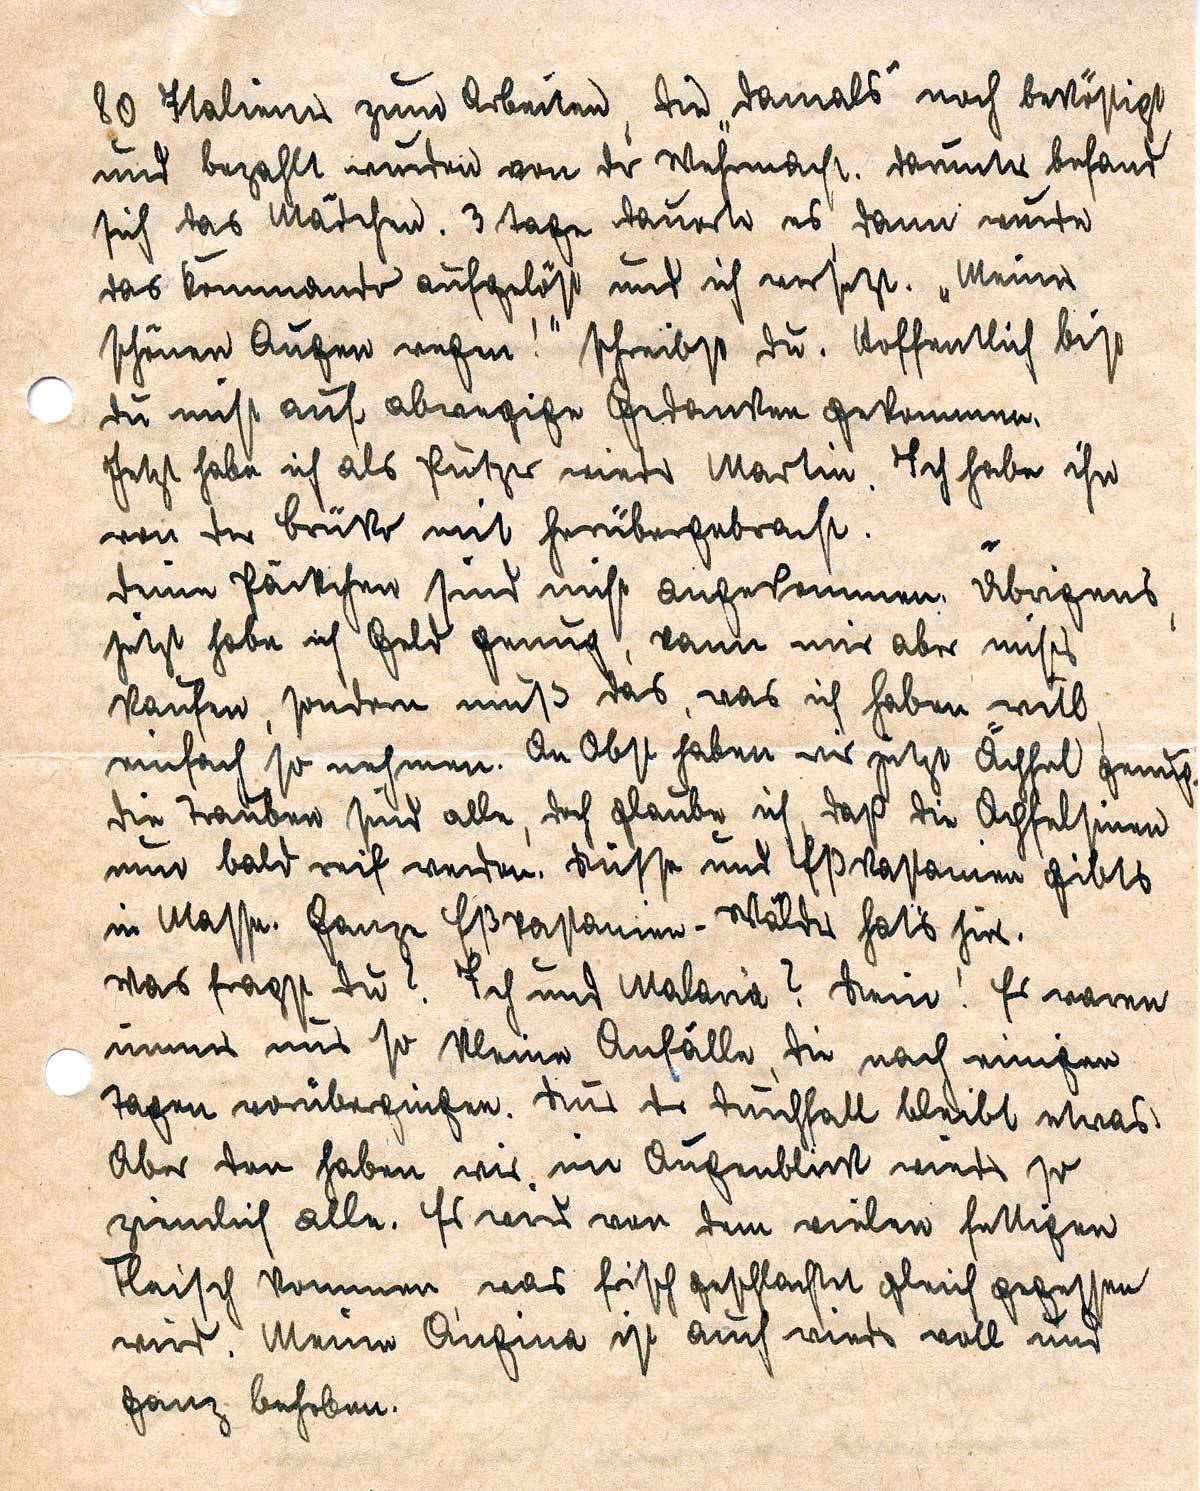 80 Italiener zum Arbeiten, die „damals“ noch beköstigt
und bezahlt wurden von der Wehrmacht. Darunter befand
sich das Mädchen. 3 Tage dauerte es, dann wurde
das Kommando aufgelöst und ich versetzt. „Meiner
schönen Augen wegen!“ schreibst Du. Hoffentlich bist
Du nicht auf abwegige Gedanken gekommen.
Jetzt habe ich als Putzer wieder Martin. Ich habe ihn
von der Brücke mit herübergebracht.
Deine Päckchen sind nicht angekommen. Übrigens,
jetzt habe ich Geld genug, kann mir aber nichts
kaufen, sondern muß das, was ich haben will,
einfach so nehmen. An Obst haben wir jetzt Äpfel genug.
Die Trauben sind alle, doch glaube ich, daß die Apfelsinen
nun bald reif werden. Nüsse und Eßkastanien gibts
in Masse. Ganze Eßkastanien-Wälder hat's hier.
Was fragst Du? Ich und Malaria? Nein! Es waren
immer nur so kleine Anfälle, die nach einigen
Tagen vorübergingen. Nur der Durchfall bleibt etwas.
Aber den haben wir im Augenblick wieder so
ziemlich alle. Es wird von dem vielen fettigen
Fleisch kommen, was frisch geschlachtet gleich gegessen
wird. Meine Angina ist auch wieder voll und
ganz behoben.